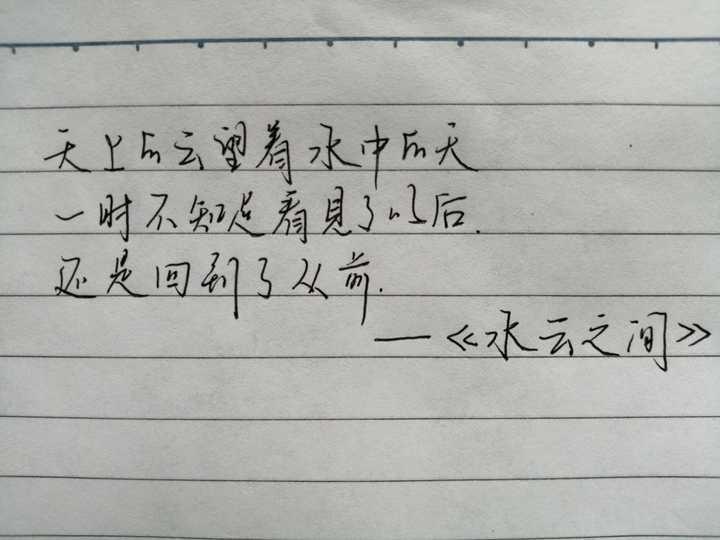 天上的云望着水中的天
一时不知是看見了以后.
还是回到了从前.
—《水云之间》